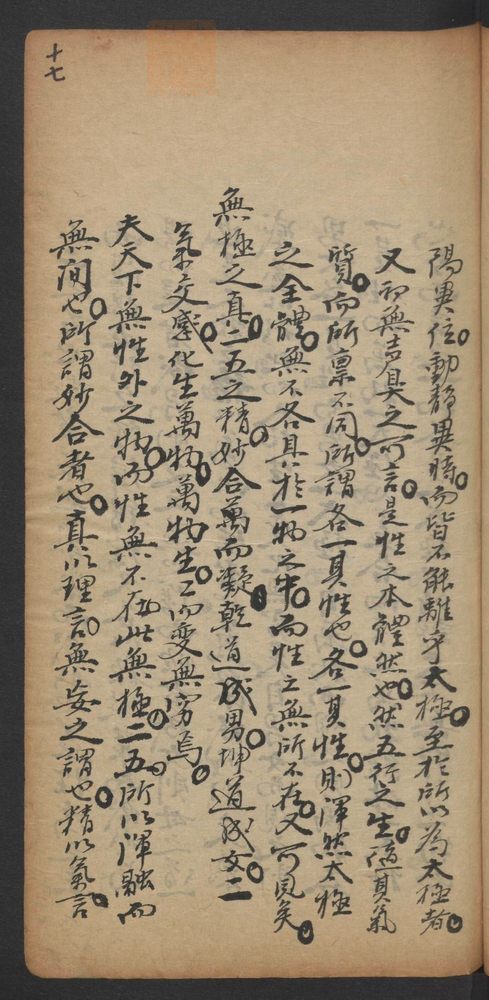 十七
陽異位動静異時而皆不能離乎太極至於所以為太極者
又初無声臭之可言是性之本體然也然五行之生隨其氣
質而所禀不同所謂各一其性也各一其性則渾然太極
之全體無不各具於一物之中而性之無所不在又可見矣
無極之真二五之精妙合而凝乾道成男坤道成女二
氣交感化生萬物萬物生二而變無窮焉
夫天下無性外之物而性無不在此無極二五所以渾融而
無间也所謂妙合者也真以理言無妄之謂也精以氣言